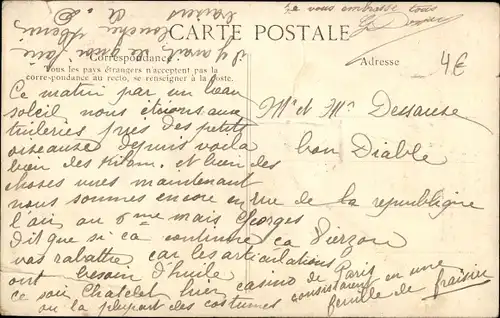 je vous embrasse tous
CARTE POSTALE
Correspondance
Tous les pays étrangers n'acceptent pas la
correspondance au recto, se renseigner à la poste.
Adresse
4€
Ce matin par un beau
soleil nous étions aux
tuileries près des petits
oiseaux depuis voila
bien des et bien des
choses vues maintenant
nous sommes encore en
l'air au 6me mais Georges
dit que si ça continue ça
vas rabattre car les articulations
ont besoin d'huile
ce soir Chatelet hier casino de Paris
ou la plupart des costumes consistaient en une
feuille de fraisier
il y avait
Mr et Mme Dessause
bon Diable
rue de la republique
Vierzon